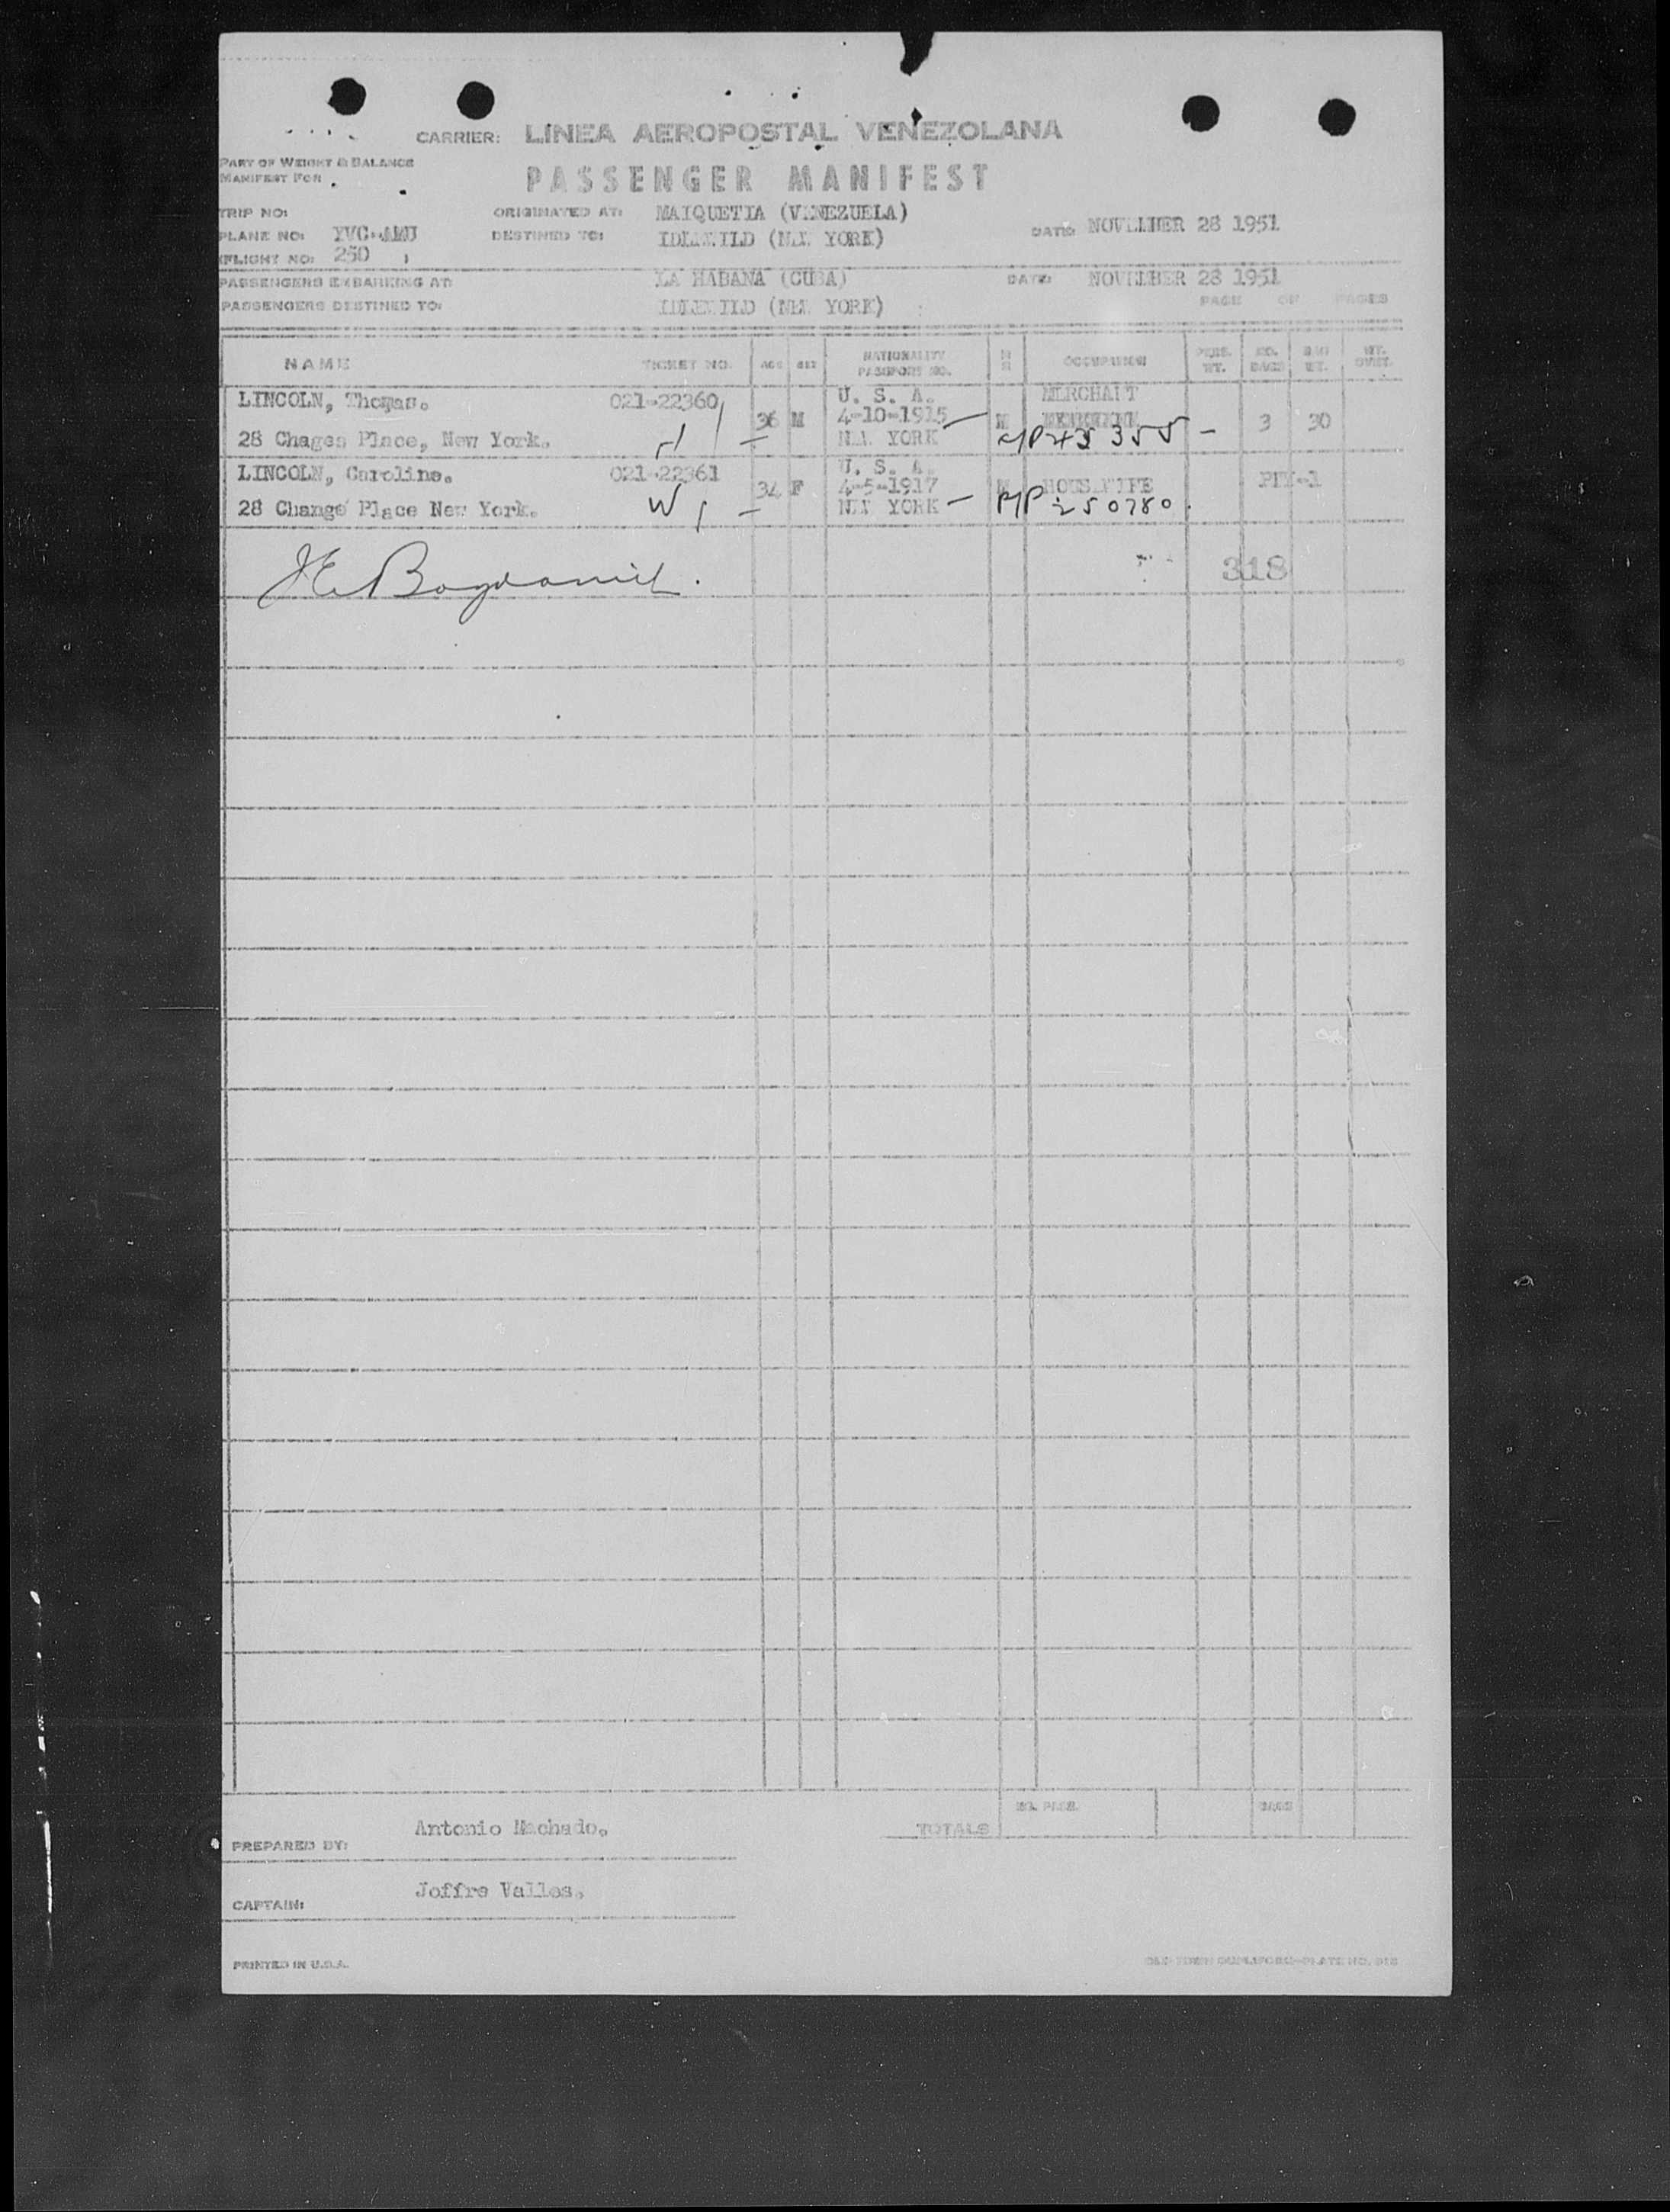 CARRIER: LINEA AEROPOSTAL VENEZOLANA
PART OF WEIGHT & BALANCE
MANIFEST FOR
PASSENGER MANIFEST
TRIP NO: ORIGINATED AT: MAIQUETIA (VENEZUELA)
PLANE NO: YVC-AMU DESTINED TO: IDLEWILD (NEW YORK) DATE: NOVEMBER 28 1951
(FLIGHT NO: 250 )
PASSENGERS EMBARKING AT: LA HABANA (CUBA) DATE: NOVEMBER 28 1951
PASSENGERS DESTINED TO: IDLEWILD (NEW YORK) PAGE OF PAGES
NAME TICKET NO. AGE SEX NATIONALITY PASSPORT NO. OCCUPATION PERS. WT. NO. BAGS BAG WT. WT. OVWT.
LINCOLN, Thomas. 021-22360 U. S. A. MERCHANT
36 M 4-10-1915 M 3 30
28 Chages Place, New York. H NEW YORK PP 43355
LINCOLN, Caroline. 021-22361 U. S. A.
34 F 4-5-1917 M HOUSEWIFE
28 Change Place New York. W NEW YORK PP 250780
318
NO. PASS. BAGS
PREPARED BY: Antonio Machado. TOTALS
CAPTAIN: Joffre Valles.
PRINTED IN U.S.A.